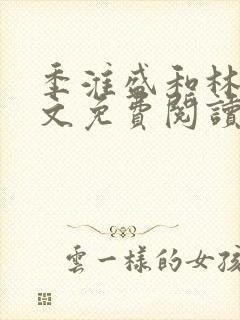 季淮盛和林
文免費閱讀
雲一樣的女孩